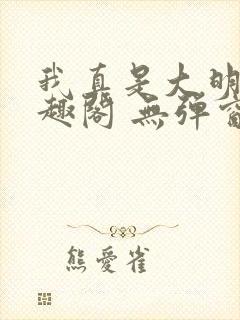 我真是大明
趣閣 無彈窗
熊愛雀